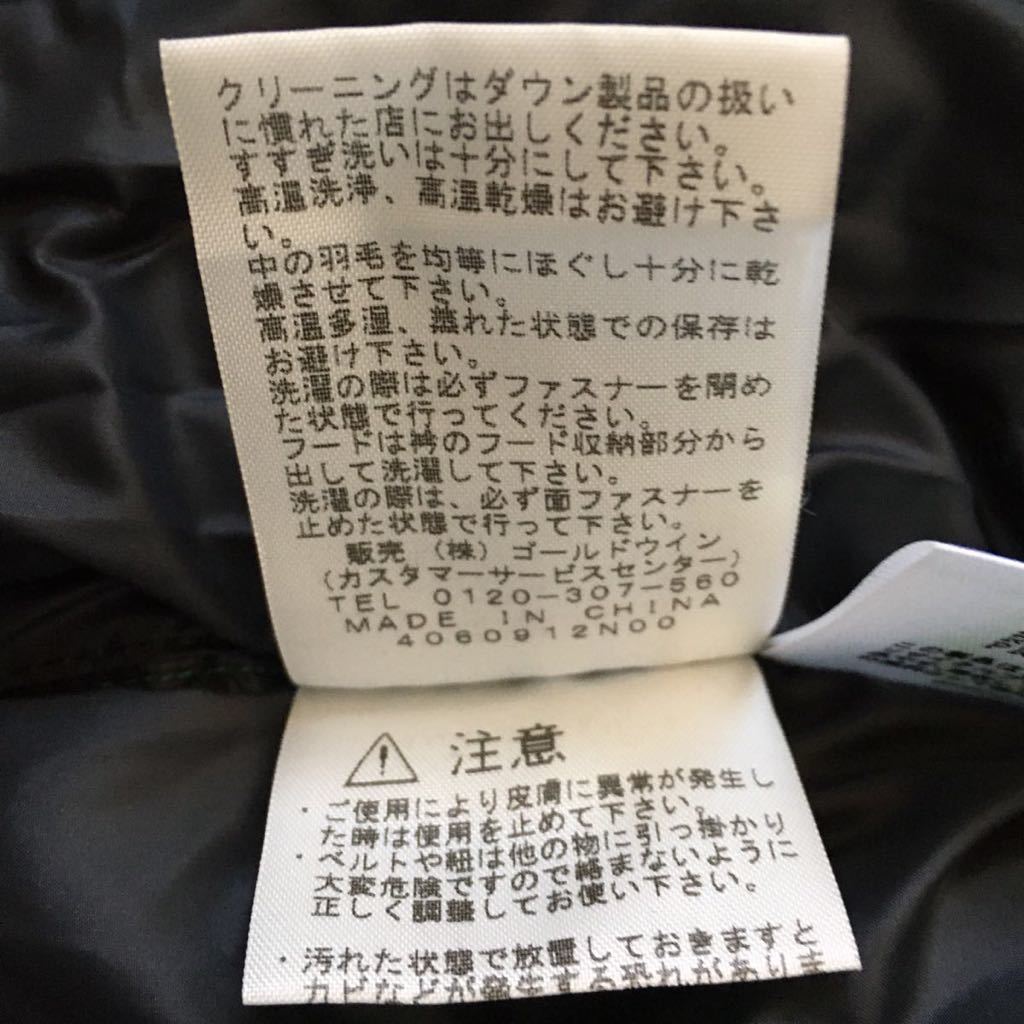 クリーニングはダウン製品の扱い
に慣れた店にお出しください。
すすぎ洗いは十分にして下さい。
高温洗浄、高温乾燥はお避け下さ
い。
中の羽毛を均等にほぐし十分に乾
燥させて下さい。
高温多湿、濡れた状態での保存は
お避け下さい。
洗濯の際は必ずファスナーを閉め
た状態で行ってください。
フードは衿のフード収納部分から
出して洗濯して下さい。
洗濯の際は、必ず面ファスナーを
止めた状態で行って下さい。
販売 (株) ゴールドウイン
(カスタマーサービスセンター)
TEL 0120-307-560
MADE IN CHINA
4060912N00
注意
・ご使用により皮膚に異常が発生し
た時は使用を止めて下さい。
・ベルトや紐は他の物に引っ掛かり
大変危険ですので絡まないように
正しく調整してお使い下さい。
・汚れた状態で放置しておきますと
カビなどが発生する恐れがありま